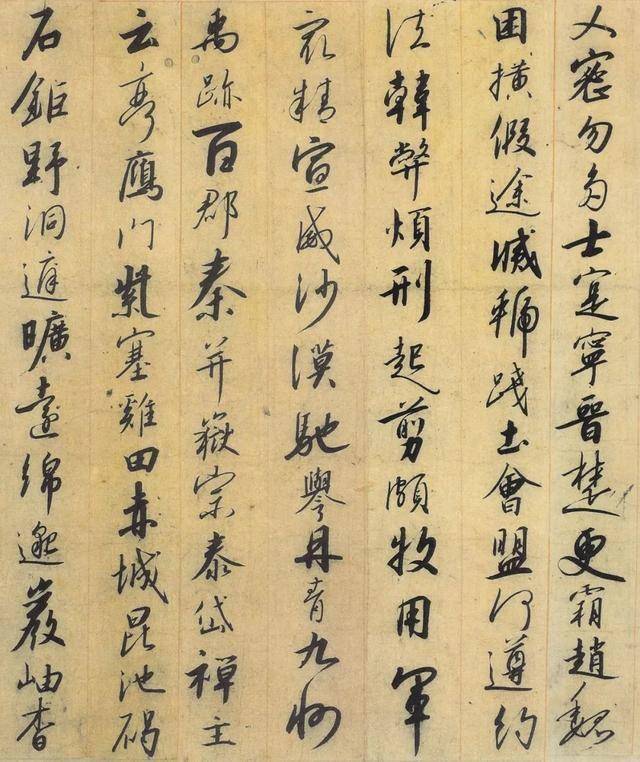 乂密勿多士寔寧晉楚更霸趙魏
困橫假途滅虢踐土會盟何遵約
法韓弊煩刑起剪頗牧用軍
最精宣威沙漠馳譽丹青九州
禹跡百郡秦并嶽宗泰岱禪主
云亭鴈門紫塞雞田赤城昆池碣
石鉅野洞庭曠遠綿邈巖岫杳